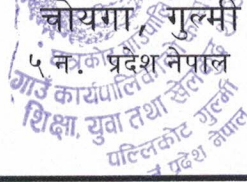 चोयगा, गुल्मी
५ न. प्रदेश नेपाल
गाउँ कार्यपालिका
शिक्षा, युवा तथा खेलकुद
गुल्मी
५ प्रदेश नेपाल